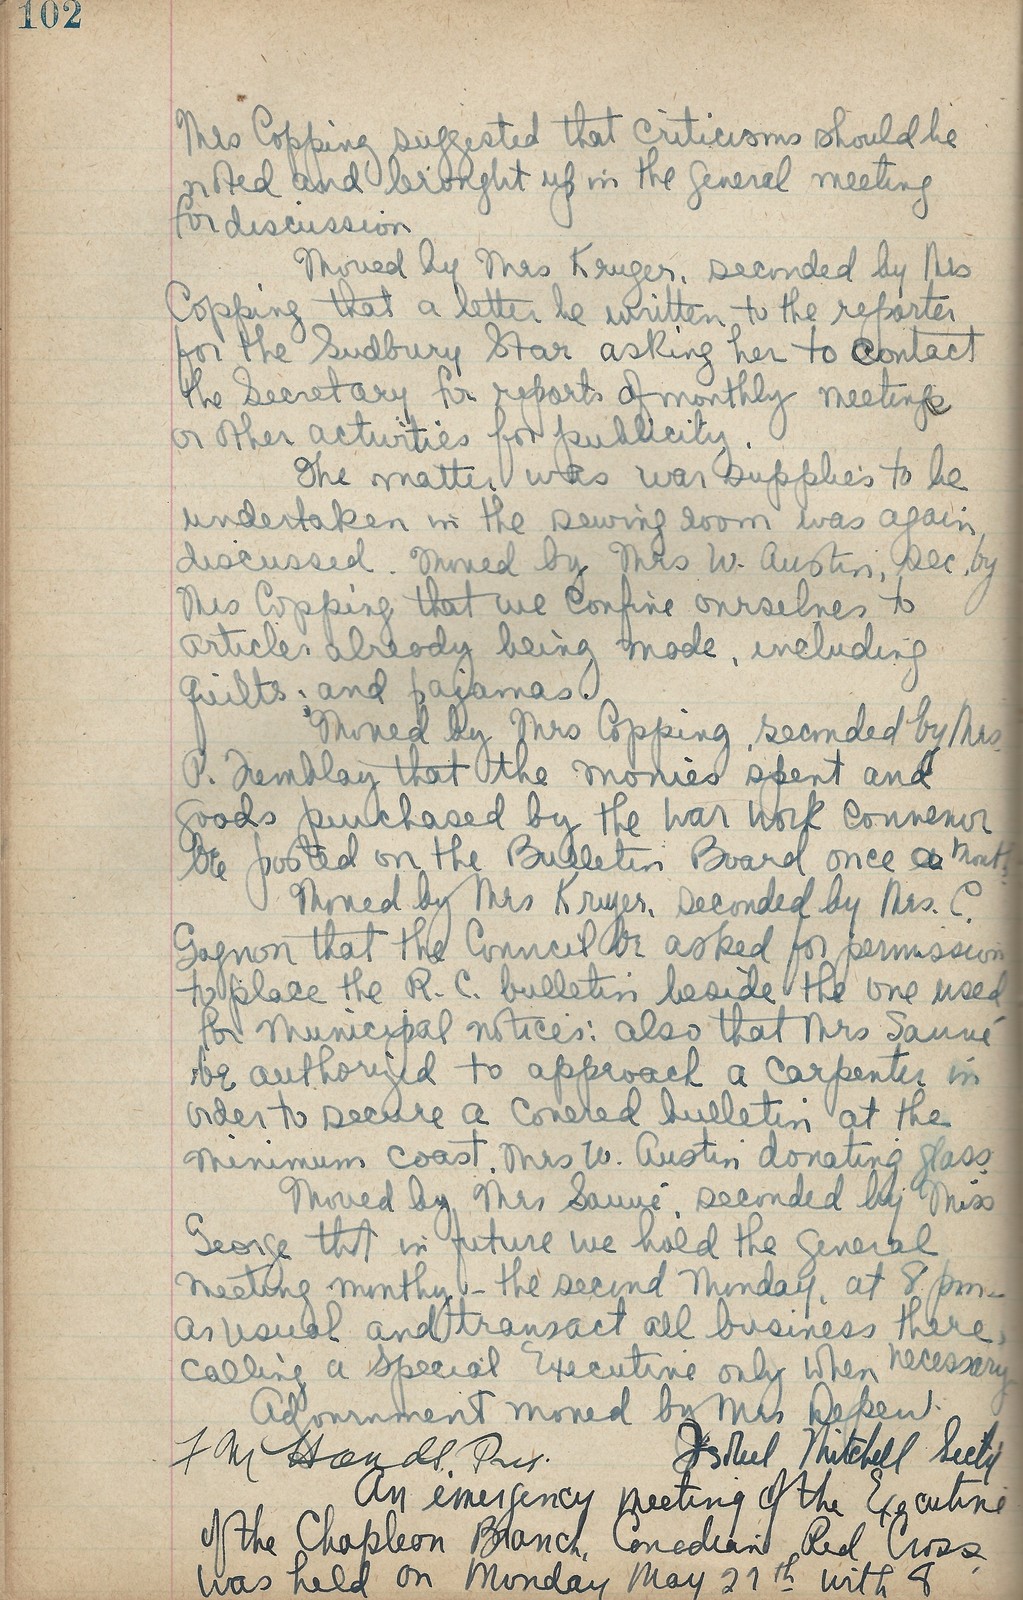 102
Mrs Copping suggested that criticisms should be
noted and brought up in the general meeting
for discussion
Moved by Mrs Kruger, seconded by Mrs
Copping that a letter be written to the reporter
for the Sudbury Star asking her to contact
the Secretary for reports of monthly meetings
or other activities for publicity.
The matter was war supplies to be
undertaken in the sewing room was again
discussed. Moved by Mrs W. Austin, sec. by
Mrs Copping that we confine ourselves to
articles already being made, including
quilts, and pajamas.
Moved by Mrs Copping, seconded by Mrs.
P. Tremblay that the monies spent and
goods purchased by the war work convenor
be posted on the Bulletin Board once a month
Moved by Mrs Kruger, seconded by Mrs. C.
Gagnon that the Council be asked for permission
to place the R. C. bulletin beside the one used
for Municipal notices: also that Mrs Sauvé
be authorized to approach a carpenter in
order to secure a covered bulletin at the
minimum coast, Mrs W. Austin donating glass
Moved by Mrs Sauvé, seconded by Miss
George that in future we hold the general
meeting monthy - the second Monday, at 8 pm -
as usual and transact all business there,
calling a Special Executive only when necessary
Adjournment moved by Mrs Depew.
F M Hands. Pres. Isobel Mitchell Sec'ty
An emergency meeting of the Executive
of the Chapleau Branch, Canadian Red Cross
was held on Monday May 27th with 8